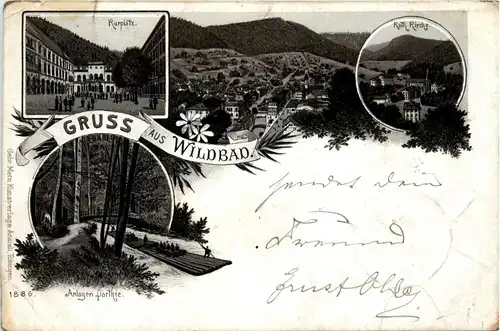 Kurplatz.
Kath. Kirche.
GRUSS AUS WILDBAD.
Anlagen Partie.
1886.
Gebr. Metz, Kunstverlags-Anstalt, Tübingen.
sendet dein
Freund
Ernst